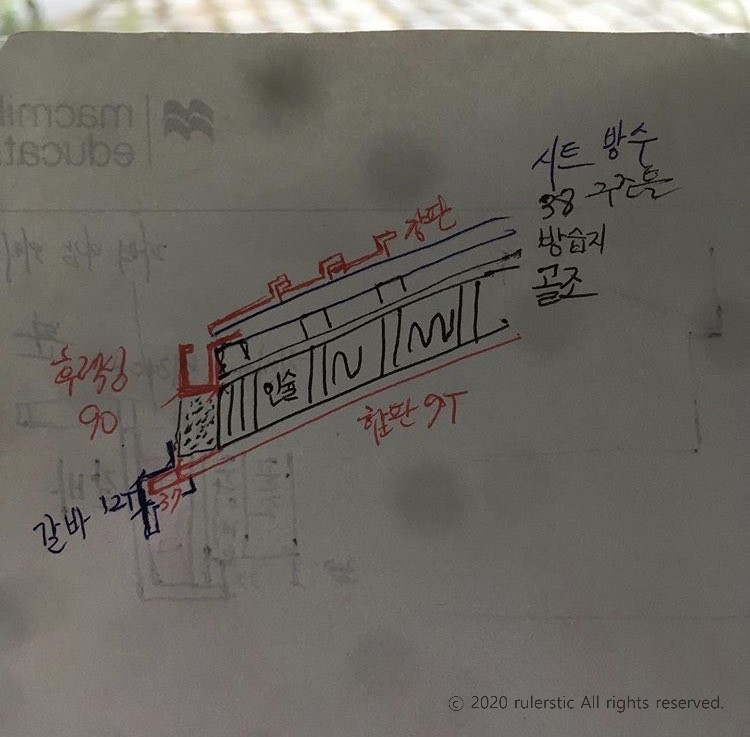 시트 방수
38 구조틀
방습지
골조
강판
후렉싱
90
인슐
합판 9T
갈바 12T
37
macmil
educat
© 2020 rulerstic All rights reserved.